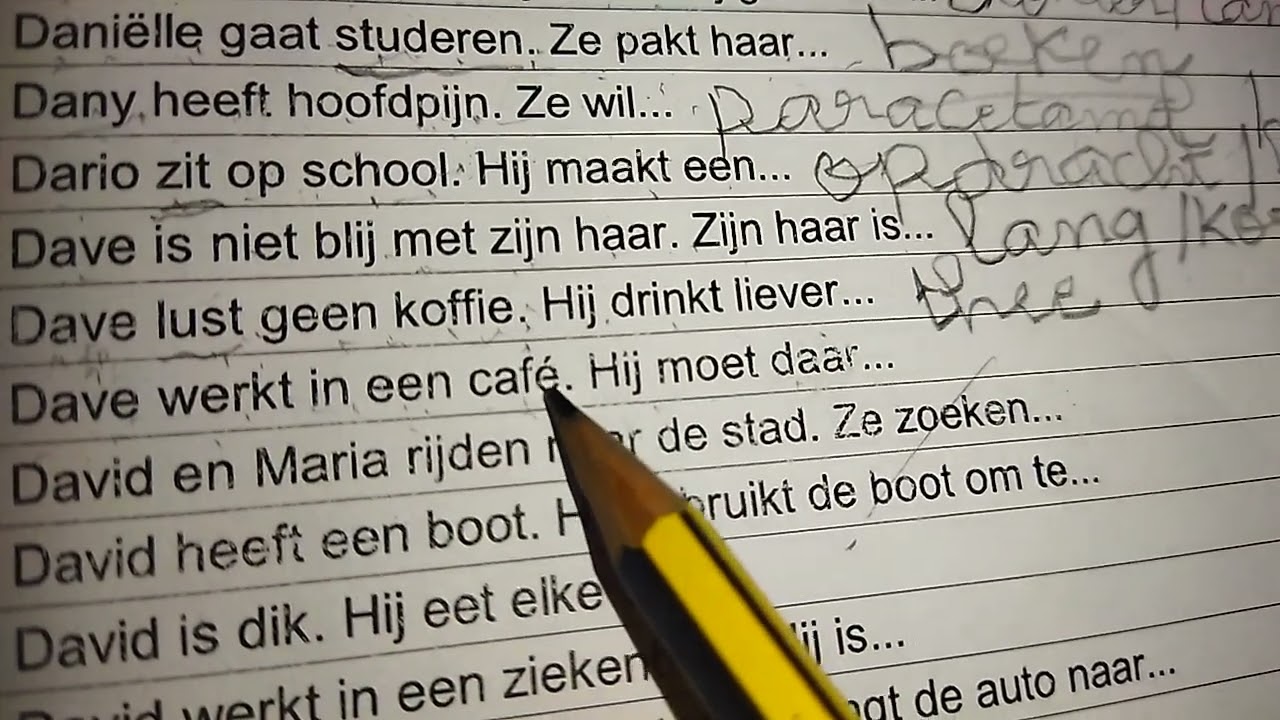 Daniëlle gaat studeren. Ze pakt haar... boeken
Dany heeft hoofdpijn. Ze wil... paracetamol
Dario zit op school. Hij maakt een... opdracht
Dave is niet blij met zijn haar. Zijn haar is... lang /ko
Dave lust geen koffie. Hij drinkt liever... thee
Dave werkt in een café. Hij moet daar...
David en Maria rijden de stad. Ze zoeken...
David heeft een boot. bruikt de boot om te...
David is dik. Hij eet elke
David werkt in een zieken is...
de auto naar...